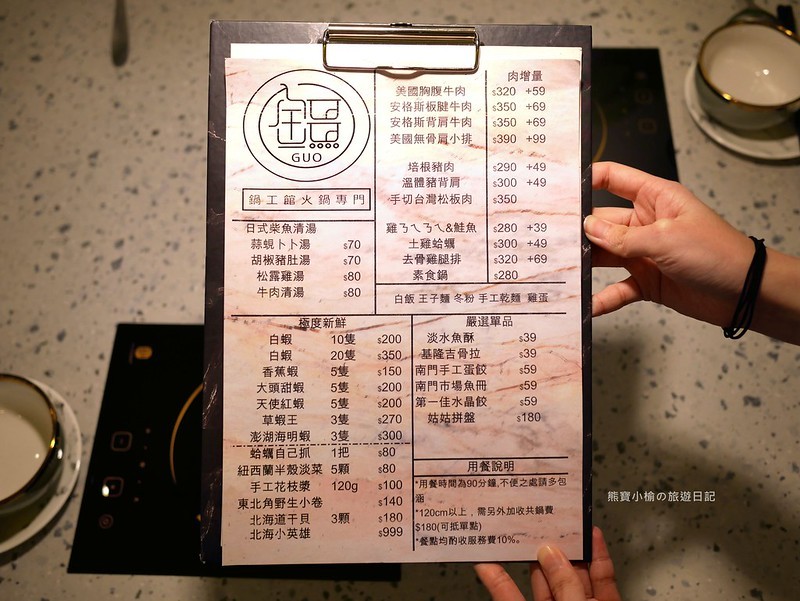 鍋
GUO
鍋工館火鍋專門
日式柴魚清湯
蒜蜆卜卜湯 $70
胡椒豬肚湯 $70
松露雞湯 $80
牛肉清湯 $80
肉增量
美國胸腹牛肉 $320 +59
安格斯板腱牛肉 $350 +69
安格斯背肩牛肉 $350 +69
美國無骨肩小排 $390 +99
培根豬肉 $290 +49
溫體豬背肩 $300 +49
手切台灣松板肉 $350
雞ㄋㄟㄋㄟ&鮭魚 $280 +39
土雞蛤蠣 $300 +49
去骨雞腿排 $320 +69
素食鍋 $280
白飯 王子麵 冬粉 手工乾麵 雞蛋
極度新鮮
白蝦 10隻 $200
白蝦 20隻 $350
香蕉蝦 5隻 $150
大頭甜蝦 5隻 $200
天使紅蝦 5隻 $200
草蝦王 3隻 $270
澎湖海明蝦 3隻 $300
蛤蠣自己抓 1把 $80
紐西蘭半殼淡菜 5顆 $80
手工花枝漿 120g $100
東北角野生小卷 $140
北海道干貝 3顆 $180
北海小英雄 $999
嚴選單品
淡水魚酥 $39
基隆吉骨拉 $39
南門手工蛋餃 $59
南門市場魚冊 $59
第一佳水晶餃 $59
姑姑拼盤 $180
用餐說明
*用餐時間為90分鐘,不便之處請多包
涵
*120cm以上，需另外加收共鍋費
$180(可抵單點)
*餐點均酌收服務費10%。
熊寶小榆の旅遊日記